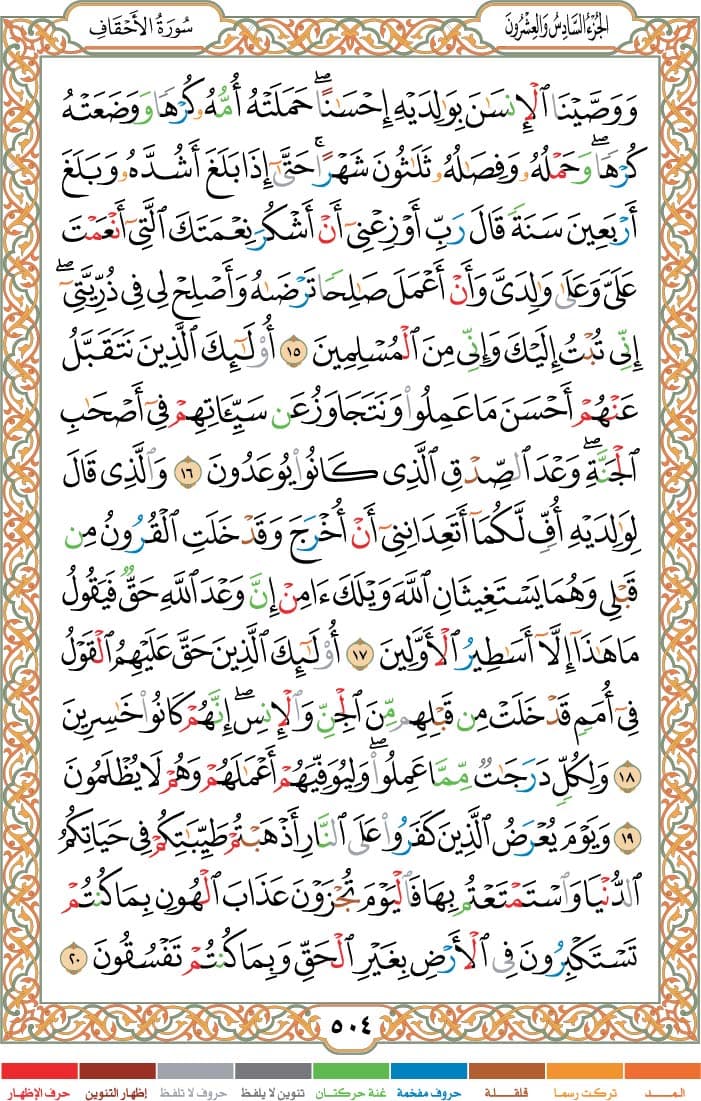 الجُزْءُ السَّادِسُ وَالْعِشْرُونَ
سُورَةُ الأَحْقَافِ
وَوَصَّيْنَا ٱلْإِنسَٰنَ بِوَٰلِدَيْهِ إِحْسَٰنًاۖ حَمَلَتْهُ أُمُّهُۥ كُرْهًا وَوَضَعَتْهُ
كُرْهًاۖ وَحَمْلُهُۥ وَفِصَٰلُهُۥ ثَلَٰثُونَ شَهْرًاۚ حَتَّىٰٓ إِذَا بَلَغَ أَشُدَّهُۥ وَبَلَغَ
أَرْبَعِينَ سَنَةً قَالَ رَبِّ أَوْزِعْنِىٓ أَنْ أَشْكُرَ نِعْمَتَكَ ٱلَّتِىٓ أَنْعَمْتَ
عَلَىَّ وَعَلَىٰ وَٰلِدَىَّ وَأَنْ أَعْمَلَ صَٰلِحًا تَرْضَىٰهُ وَأَصْلِحْ لِى فِى ذُرِّيَّتِىٓۖ
إِنِّى تُبْتُ إِلَيْكَ وَإِنِّى مِنَ ٱلْمُسْلِمِينَ ١٥ أُو۟لَٰٓئِكَ ٱلَّذِينَ نَتَقَبَّلُ
عَنْهُمْ أَحْسَنَ مَا عَمِلُوا۟ وَنَتَجَاوَزُ عَن سَيِّـَٔاتِهِمْ فِىٓ أَصْحَٰبِ
ٱلْجَنَّةِۖ وَعْدَ ٱلصِّدْقِ ٱلَّذِى كَانُوا۟ يُوعَدُونَ ١٦ وَٱلَّذِى قَالَ
لِوَٰلِدَيْهِ أُفٍّ لَّكُمَآ أَتَعِدَانِنِىٓ أَنْ أُخْرَجَ وَقَدْ خَلَتِ ٱلْقُرُونُ مِن
قَبْلِى وَهُمَا يَسْتَغِيثَانِ ٱللَّهَ وَيْلَكَ ءَامِنْ إِنَّ وَعْدَ ٱللَّهِ حَقٌّ فَيَقُولُ
مَا هَٰذَآ إِلَّآ أَسَٰطِيرُ ٱلْأَوَّلِينَ ١٧ أُو۟لَٰٓئِكَ ٱلَّذِينَ حَقَّ عَلَيْهِمُ ٱلْقَوْلُ
فِىٓ أُمَمٍ قَدْ خَلَتْ مِن قَبْلِهِم مِّنَ ٱلْجِنِّ وَٱلْإِنسِۖ إِنَّهُمْ كَانُوا۟ خَٰسِرِينَ
١٨ وَلِكُلٍّ دَرَجَٰتٌ مِّمَّا عَمِلُوا۟ۖ وَلِيُوَفِّيَهُمْ أَعْمَٰلَهُمْ وَهُمْ لَا يُظْلَمُونَ
١٩ وَيَوْمَ يُعْرَضُ ٱلَّذِينَ كَفَرُوا۟ عَلَى ٱلنَّارِ أَذْهَبْتُمْ طَيِّبَٰتِكُمْ فِى حَيَاتِكُمُ
ٱلدُّنْيَا وَٱسْتَمْتَعْتُم بِهَا فَٱلْيَوْمَ تُجْزَوْنَ عَذَابَ ٱلْهُونِ بِمَا كُنتُمْ
تَسْتَكْبِرُونَ فِى ٱلْأَرْضِ بِغَيْرِ ٱلْحَقِّ وَبِمَا كُنتُمْ تَفْسُقُونَ ٢٠
٥٠٤
المـــد تركت رسما قلقـــلة حروف مفخمة غنة حركتان تنوين لا يلفظ حروف لا تلفظ إظهار التنوين حرف الإظهار